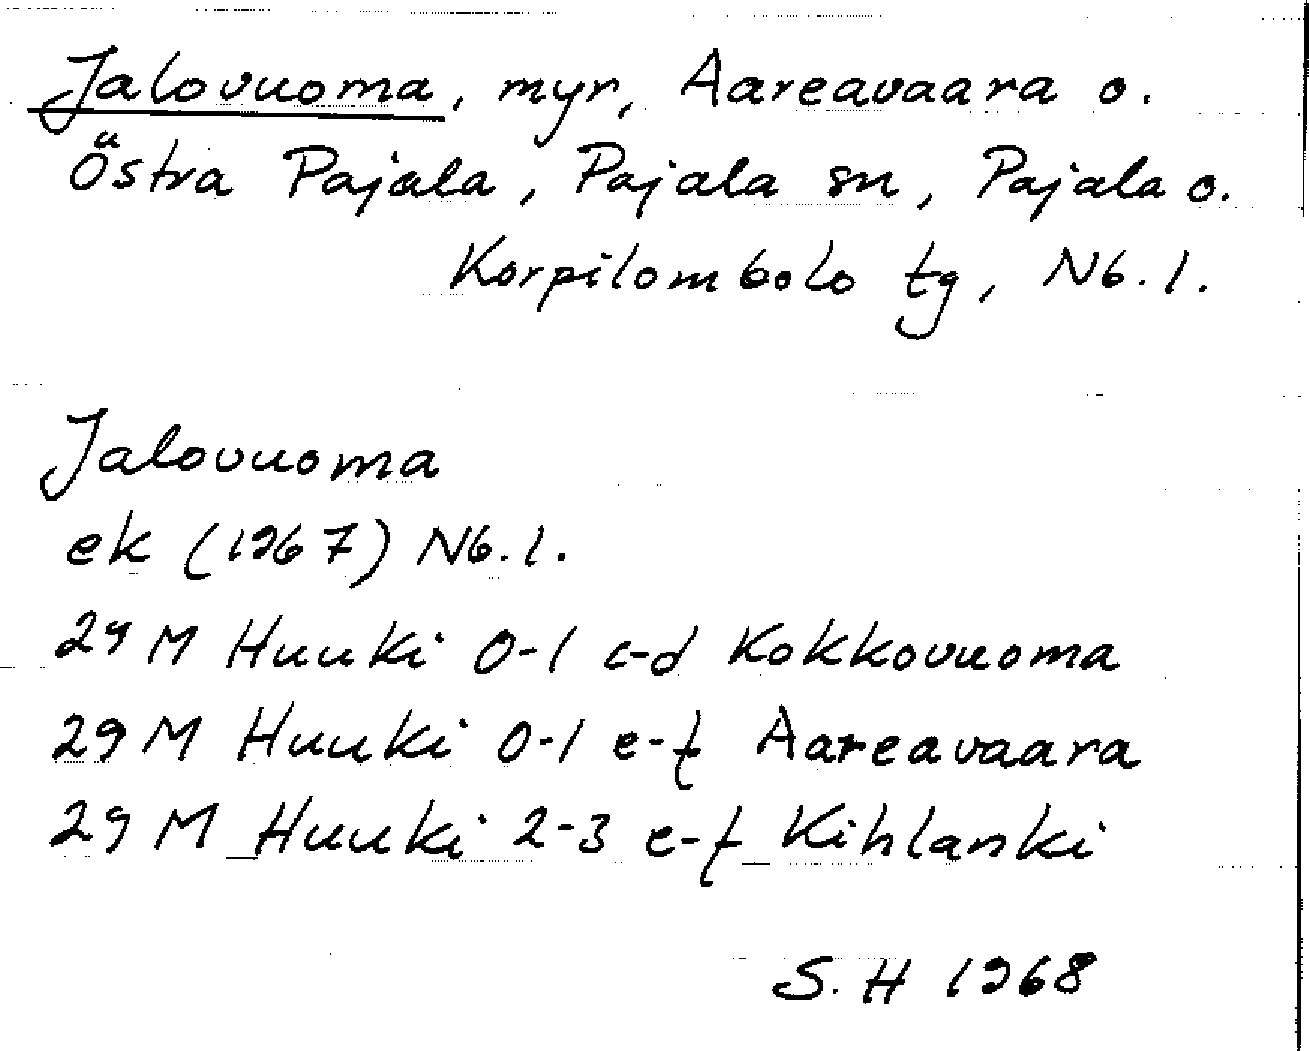 Jalovuoma, myr, Aareavaara o.
Östra Pajala, Pajala sn, Pajala o.
Korpilombolo tg, Nb. l.
Jalovuoma
ek (1967) Nb. l.
29 M Huuki 0-1 c-d Kokkovuoma
29 M Huuki 0-1 e-f Aareavaara
29 M Huuki 2-3 e-f Kihlanki
S. H 1968